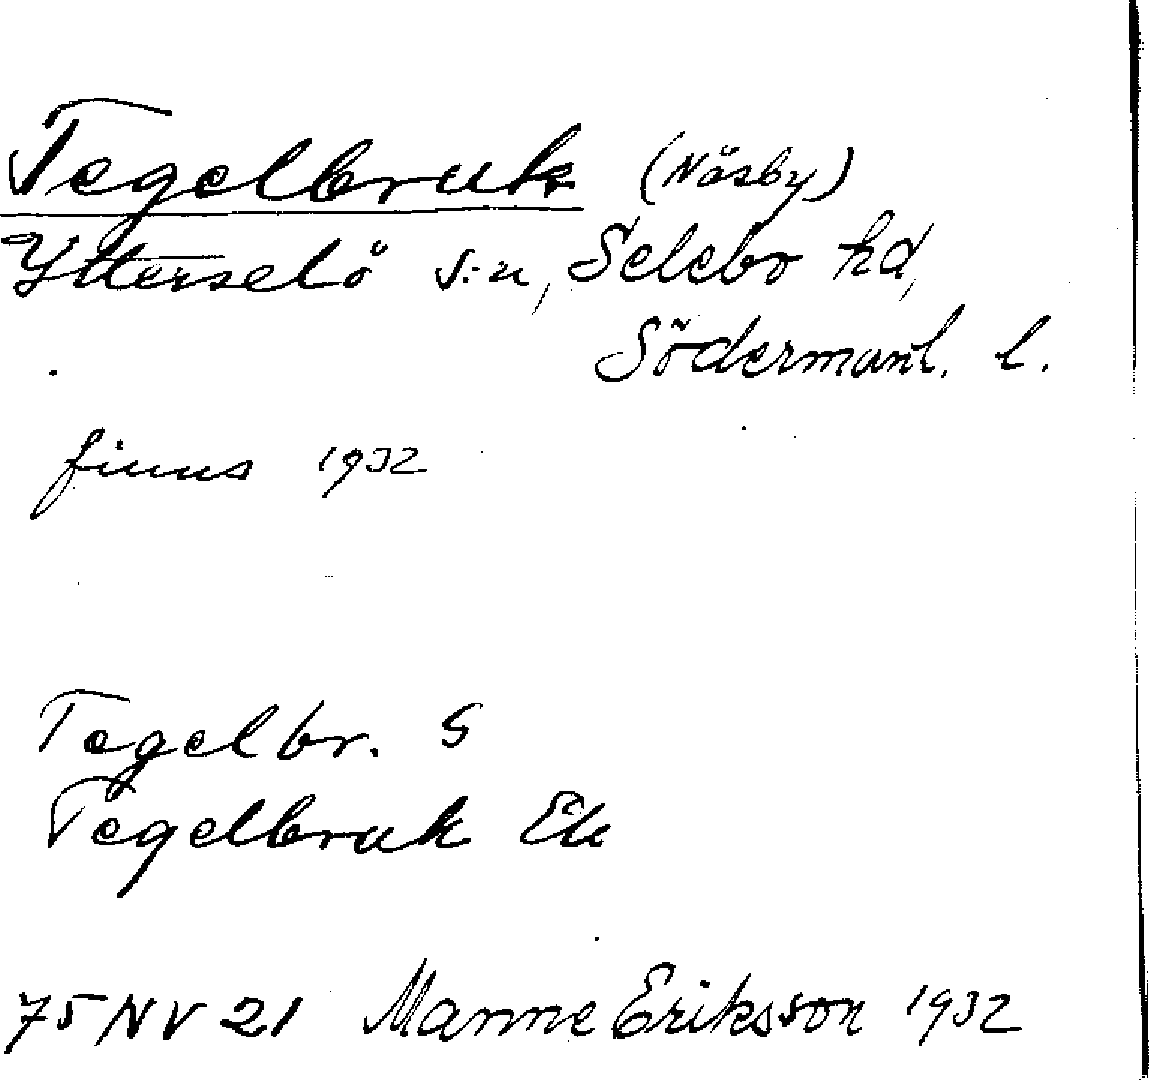 Tegelbruk (Näsby)
Ytterselö s:n, Selebo hd,
Södermanl. l.
finns 1932
Tegelbr. S
Tegelbruk Ek
75 NV 21 Manne Eriksson 1932